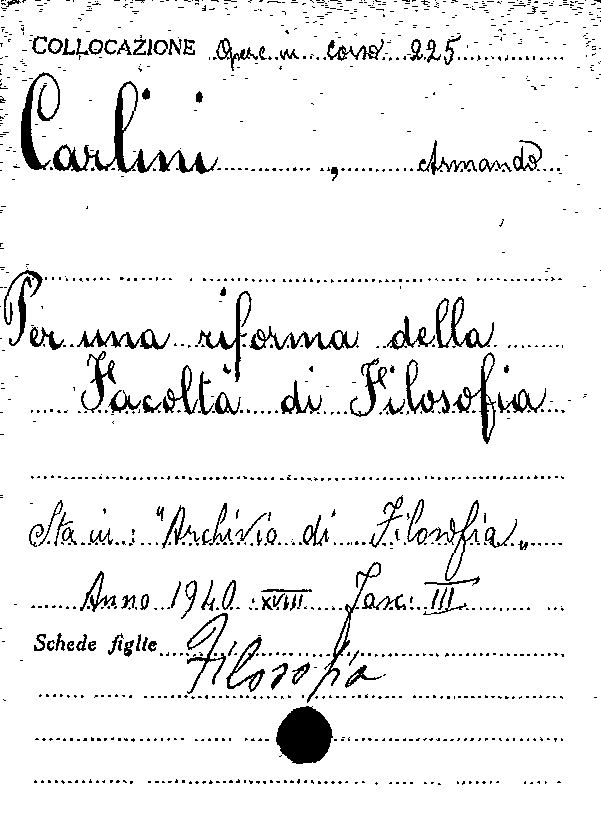 COLLOCAZIONE Opere in corso 225
Carlini, Armando
Per una riforma della
Facoltà di Filosofia
Sta in: "Archivio di Filosofia„
Anno 1940 XVIII Fasc. III
Schede figlie
Filosofia